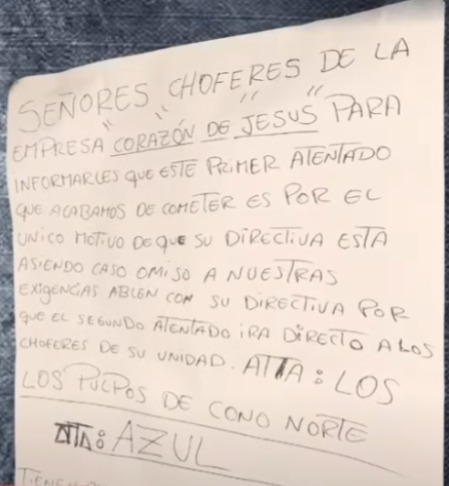 SEÑORES CHOFERES DE LA
EMPRESA "CORAZÓN DE JESUS" PARA
INFORMARLES QUE ESTE PRIMER ATENTADO
QUE ACABAMOS DE COMETER ES POR EL
UNICO MOTIVO DE QUE SU DIRECTIVA ESTA
ASIENDO CASO OMISO A NUESTRAS
EXIGENCIAS ABLEN CON SU DIRECTIVA POR
QUE EL SEGUNDO ATENTADO IRA DIRECTO A LOS
CHOFERES DE SU UNIDAD. ATTA: LOS
LOS PULPOS DE CONO NORTE
ATTA: AZUL